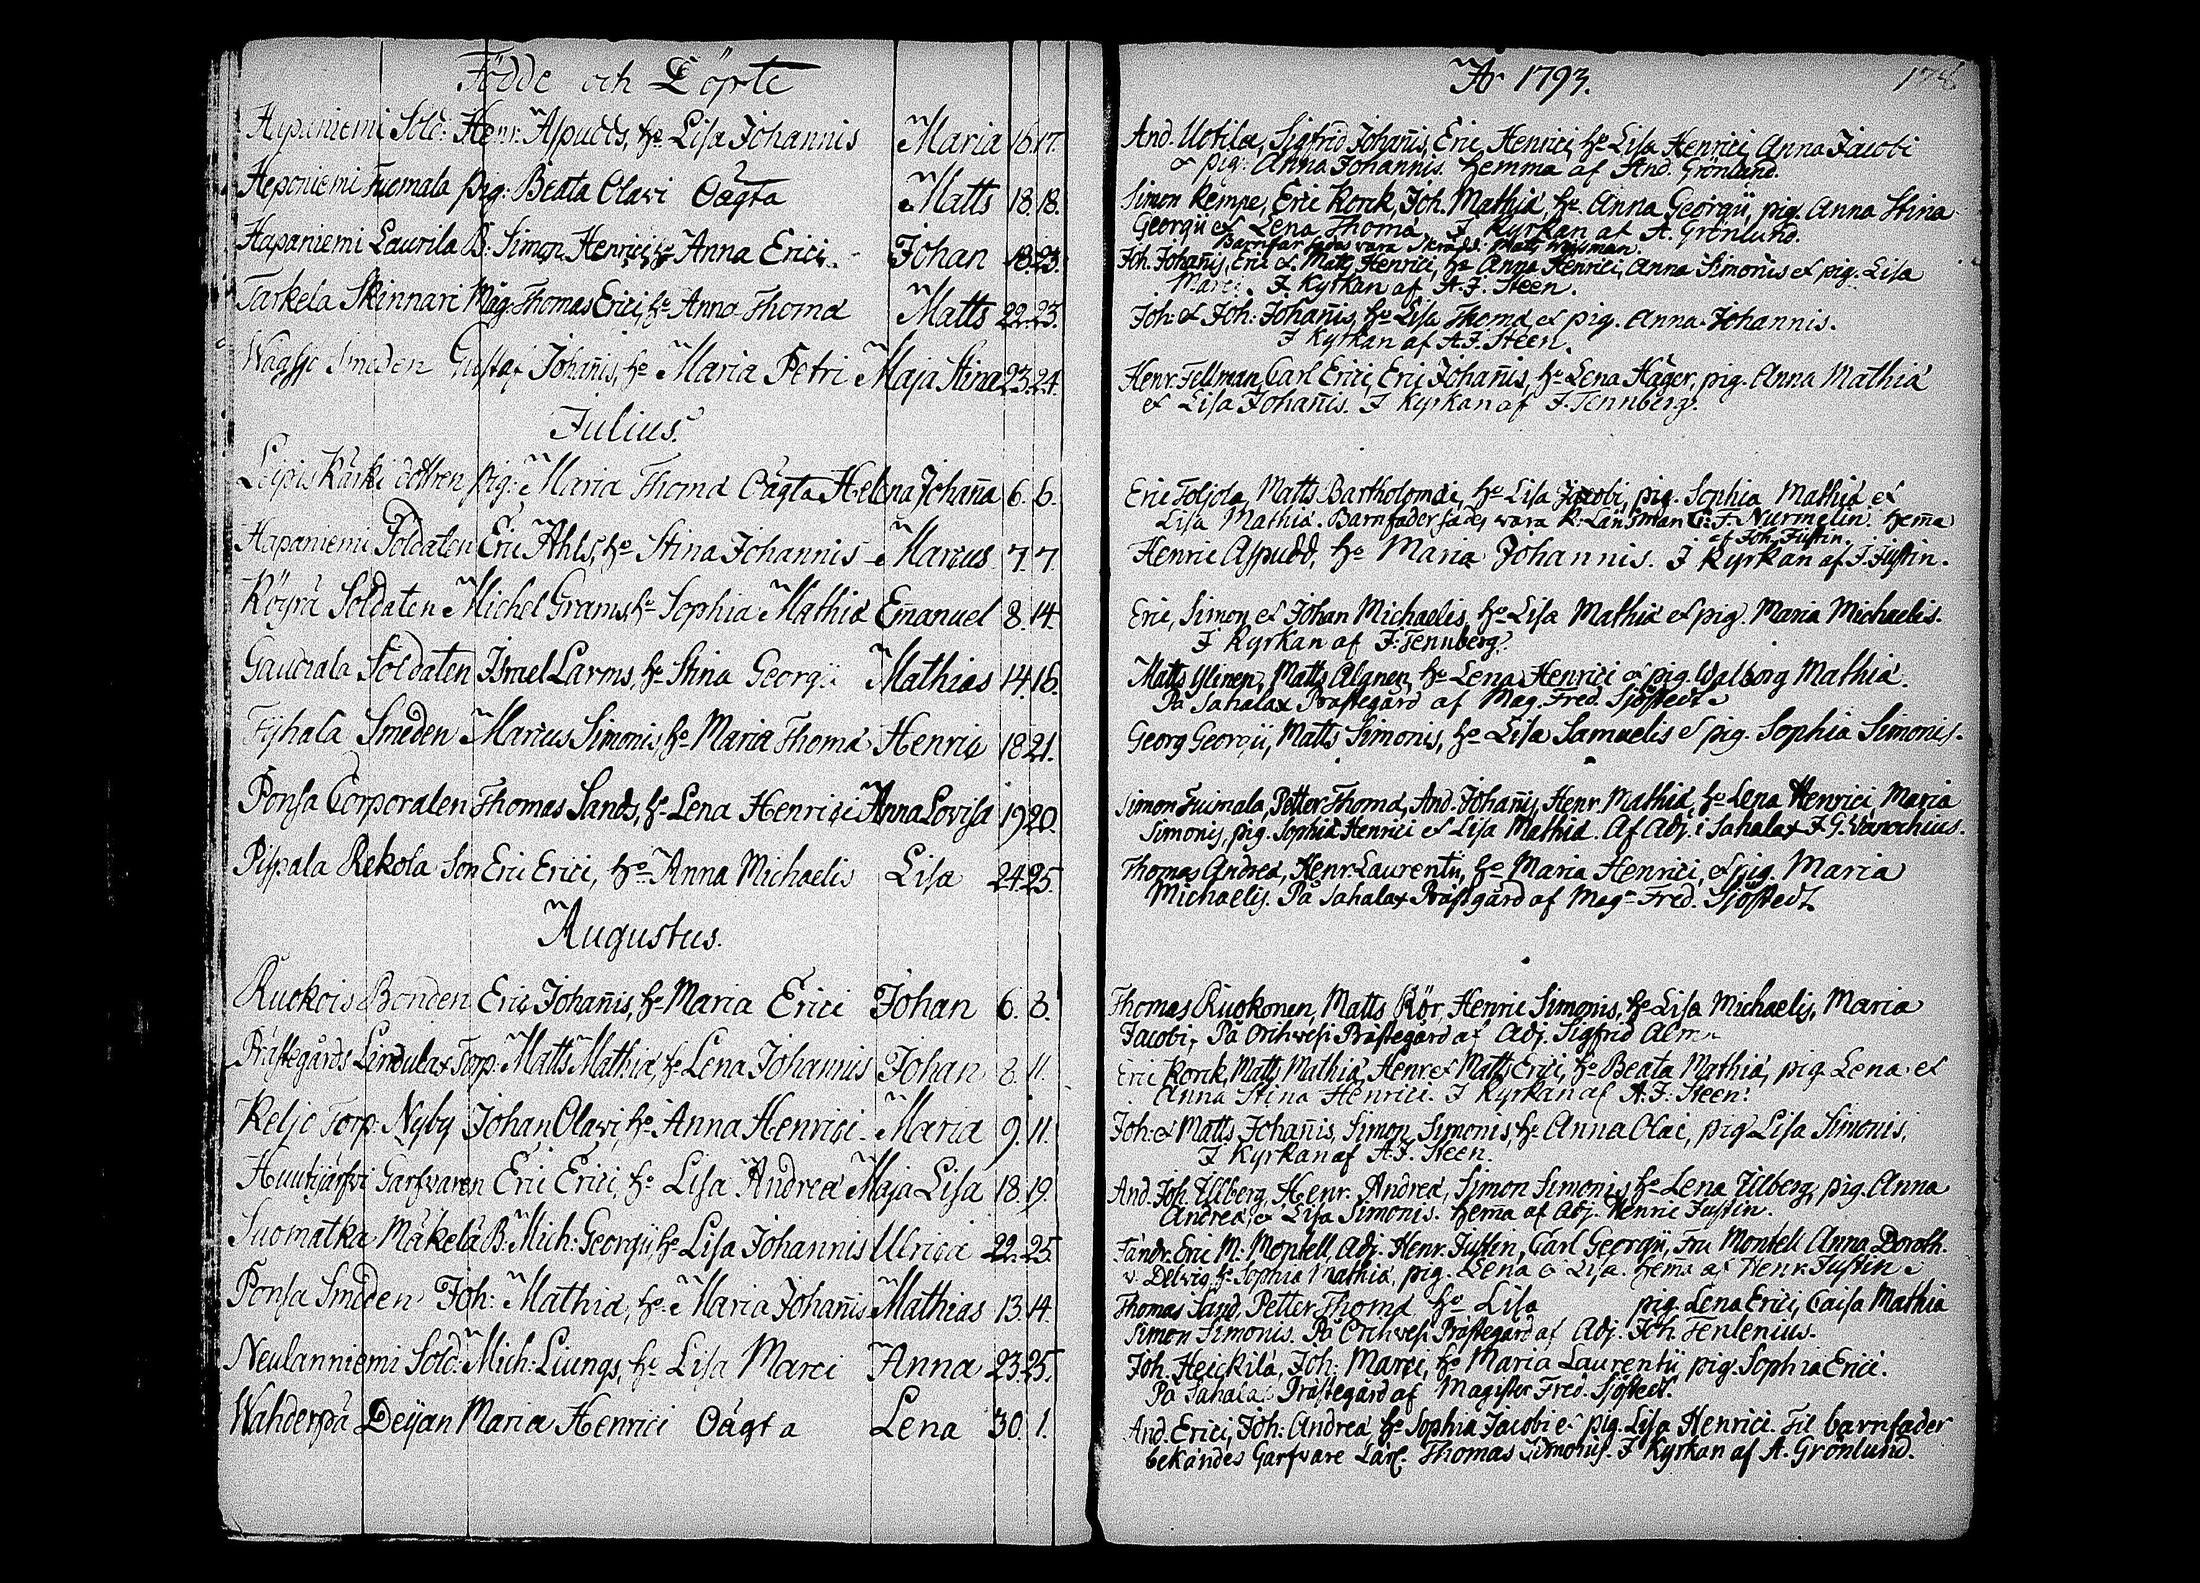 Födde och Döpte
Hapaniemi Sold: Henr. Aspudds, hu Lisa Johannis Maria 16. 17.
Haponiemi Tuomala pig: Beata Olavi Oägta Matts 18. 18.
Hapaniemi Laurila B: Simon Henrici, hu Anna Erici Johan 18. 23.
Tarkela Skinnari Måg: Thomas Erici, hu Anna Thomæ Matts 22. 23.
Smeden Gustaf Johañis, hu Maria Petri Maja Stina 23. 24.
Julius.
Kärki dottren pig: Maria Thomæ Oägta Helena Johaña 6. 6.
Hapaniemi Soldaten Eric Ahls, hu Stina Johannis Marcus 7. 7.
Köyrä Soldaten Michel Grams, hu Sophia Mathiæ Emanuel 8. 14.
Soldaten Israel Larms, hu Stina Georgii Mathias 14. 16.
Tyhala Smeden Marcus Simonis, hu Maria Thomæ Henric 18 21.
Ponsa Corporalen Thomas Sands, hu Lena Henrici Anna Lovisa 19 20.
Pispala Rekola Son Eric Erici, hu Anna Michaelis Lisa 24. 25.
Augustus.
Ruokois Bonden Eric Johañis, hu Maria Erici Johan 6. 8.
Prästegårds Lendulax Torp: Matts Mathiæ, hu Lena Johannis Johan 8. 11.
Keljo Torp: Nyby Johan Olavi, hu Anna Henrici Maria 9. 11.
Huutijärfvi Garfvaren Eric Erici, hu Lisa Andreæ Maja Lisa 18. 19.
Suomatka Mäkelä B. Mich: Georgii, hu Lisa Johannis Ulrica 22. 25.
Ponsa Smeden Joh: Mathiæ, hu Maria Johañis Mathias 13. 14.
Neulanniemi Sold: Mich: Liungs, hu Lisa Marci Anna 23. 25.
Wahderpä Deijan Maria Henrici Oägta Lena 30. 1.
År 1793.
And. Uotila, Sigfrid Johañis, Eric Henrici, hu Lisa Henrici, Anna Jacobi
& pig: Anna Johannis. Hemma af And. Grönlund.
Simon Rempe, Eric Korck, Joh. Mathiæ, hu Anna Georgii, pig. Anna Stina
Georgii & Lena Thomæ. I Kyrkan af A. Grönlund.
Barnfar sades vara Skrädd: Matts
Joh. Johañis, Eric & Matts Henrici, hu Anna Henrici, Anna Simonis & pig. Lisa
Marci. I Kyrkan af A. J. Steen.
Joh: & Joh: Johañis, hu Lisa Thomæ & pig. Anna Johannis.
I Kyrkan af A. J. Steen.
Henr. Fellman, Carl Erici, Eric Johañis, hu Lena Häger, pig. Anna Mathiæ
& Lisa Johañis. I Kyrkan af J. Tennberg.
Eric Toljola, Matts Bartholomæi, hu Lisa Jacobi, pig. Sophia Mathiæ &
Lisa Mathiæ. Barnfader sades vara K: Länsman G: F. Nurmelin. Hem̃a
af Joh. Justin.
Henric Aspudd, hu Maria Johannis. I Kyrkan af J. Justin.
Eric, Simon & Johan Michaelis, hu Lisa Mathiæ & pig. Maria Michaelis.
I Kyrkan af J. Tennberg.
Matts Ylinen, Matts Alanen, hu Lena Henrici & pig. Walborg Mathiæ.
På Sahalax Prästegård af Mag. Fred. Sjöstedt
Georg Georgii, Matts Simonis, hu Lisa Samuelis & pig. Sophia Simonis.
Simon Tuimala, Petter Thomæ, And. Johañis, Henr. Mathiæ, hu Lena Henrici, Maria
Simonis, pig. Sophia Henrici & Lisa Mathiæ. Af Adj. i Sahalax J. G. Wanochius.
Thomas Andreæ, Henr. Laurentii, hu Maria Henrici, & pig. Maria
Michaelis. På Sahalax Prästgård af Mag. Fred. Sjöstedt.
Thomas Ruokonen, Matts Kör, Henric Simonis, hu Lisa Michaelis, Maria
Jacobi, På Orihvesi Prästegård af Adj. Sigfrid
Eric Korck, Matts Mathiæ, Henr. & Matts Erici, hu Beata Mathiæ, pig. Lena &
Anna Stina Henrici. I Kyrkan af A. J. Steen.
Joh: & Matts Johañis, Simon Simonis, hu Anna Olai, pig Lisa Simonis,
I Kyrkan af A. J. Steen.
And. Joh. Ulberg, Henr. Andreæ, Simon Simonis, hu Lena Ulberg, pig. Anna
Andreæ, & Lisa Simonis. Hem̃a af Adj. Henric Justin.
Fändr. Eric M: Montell, Adj. Henr. Justin, Carl Georgii, Fru Montell Anna Doroth.
v. Delvig, hu Sophia Mathiæ, pig. Lena & Lisa. Hema af Henr. Justin
Thomas Sand, Petter Thomæ hu Lisa pig. Lena Erici, Caisa Mathiæ
Simon Simonis. På Orihvesi Prästegård af Adj. Joh. Tenlenius.
Joh. Heickilä, Joh: Marci, hu Maria Laurentii, pig. Sophia Erici.
På Sahalax Prästegård af Magister Fred. Sjöstedt.
And. Erici, Joh: Andreæ, hu Sophia Jacobi & pig. Lisa Henrici. Til barnfader
bekändes Garfvare Lärl. Thomas Simonis. I Kyrkan af A. Grönlund.